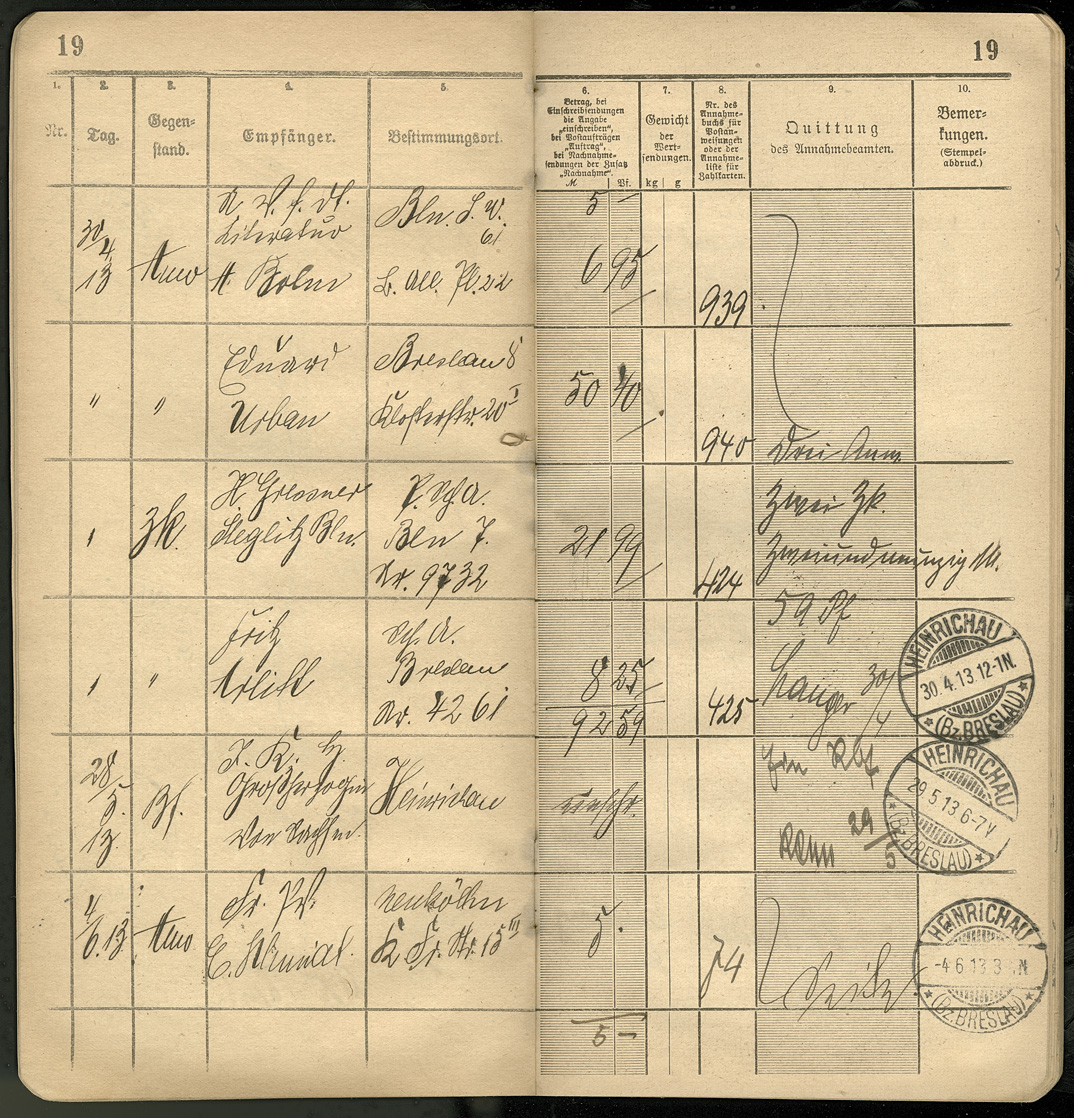 19
19
1.
Nr.
2.
Tag.
3.
Gegen-
stand.
4.
Empfänger.
5.
Bestimmungsort.
6.
Betrag, bei
Einschreibsendungen
die Angabe
„einschreiben“,
bei Postaufträgen
„Auftrag“,
bei Nachnahme-
sendungen der Zusatz
„Nachnahme“.
M Pf.
7.
Gewicht
der
Wert-
sendungen.
kg g
8.
Nr. des
Annahme-
buchs für
Postan-
weisungen
oder der
Annahme-
liste für
Zahlkarten.
9.
Quittung
des Annahmebeamten.
10.
Bemer-
kungen.
(Stempel-
abdruck.)
30/4 13
A. V. f. dt.
Literatur
Bln. S. W.
61
5 –
H. Bolm
B. All. Pl. 22
6 95
939
" "
Eduard
Urban
Breslau 8
Klosterstr. 20 I
50 40
940
Drei Anw.
Zk.
H Gressner
Steglitz Bln.
P. Sch A.
Bln 7.
Nr. 9732
21 99
424
Zwei Zk.
Zweiundneunzig M.
59 Pf
"
Fritz
Arlitt
Sch. A.
Breslau
Nr. 4261
8 25
92 59
425
Langer 30/4
HEINRICHAU
30.4.13.12-1N.
(Bz.BRESLAU)
28/5. 13.
Bf.
I. K. H.
Großherzogin
von Sachsen.
Heinrichau
einschr.
Ein Rbf
29/5
HEINRICHAU
29.5.13.6-7V
(Bz.BRESLAU)
4/6.13
Fr. Pf.
Neukölln
K. Fr. Str. 15 III
5.
74
HEINRICHAU
-4.6.13.3 N
(Bz.BRESLAU)
5 –